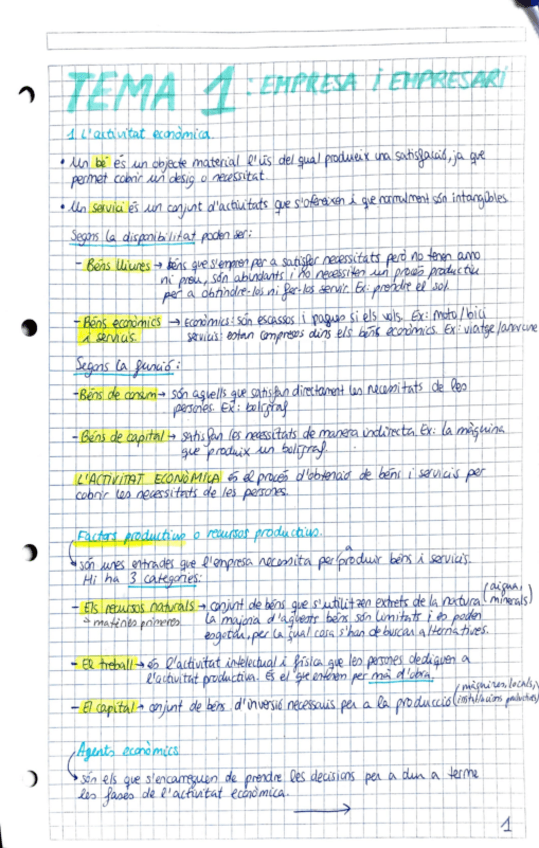 TEMA 1: EMPRESA i EMPRESARI
1. L'activitat econòmica.
• Un bé és un objecte material l'ús del qual produeix una satisfacció, ja que
permet cobrir un desig o necessitat.
• Un servici és un conjunt d'activitats que s'ofereixen i que normalment són intangibles
Segons la disponibilitat poden ser:
- Béns lliures → béns que s'empren per a satisfer necessitats però no tenen amo
ni preu, són abundants i no necessiten un procés productiu
per a obtindre-los ni fer-los servir. Ex: prendre el sol.
- Béns econòmics → Econòmics: són escassos i pagues si els vols. Ex: moto/bici
i servicis. servicis: estan compresos dins els béns econòmics. Ex: viatge/
Segons la funció:
- Béns de consum → són aquells que satisfan directament les necessitats de les
persones. Ex: bolígraf
- Béns de capital → satisfan les necessitats de manera indirecta. Ex: la màquina
que produix un bolígraf.
L'ACTIVITAT ECONÒMICA és el procés d'obtenció de béns i servicis per
cobrir les necessitats de les persones.
Factors productius o recursos productius.
són unes entrades que l'empresa necessita per a produir béns i servicis.
Hi ha 3 categories:
- Els recursos naturals → conjunt de béns que s'utilitzen extrets de la natura (aigua, minerals)
→ matèries primeres La majoria d'aquests béns són limitats i es poden
esgotar, per la qual cosa s'han de buscar alternatives.
- El treball → és l'activitat intelectual i física que les persones dediquen a
l'activitat productiva. És el que entenem per mà d'obra.
- El capital → conjunt de béns d'inversió necessaris per a la producció (màquines, locals, instal·lacions productives)
Agents econòmics
són els que s'encarreguen de prendre les decisions per a dur a terme
les fases de l'activitat econòmica.
1